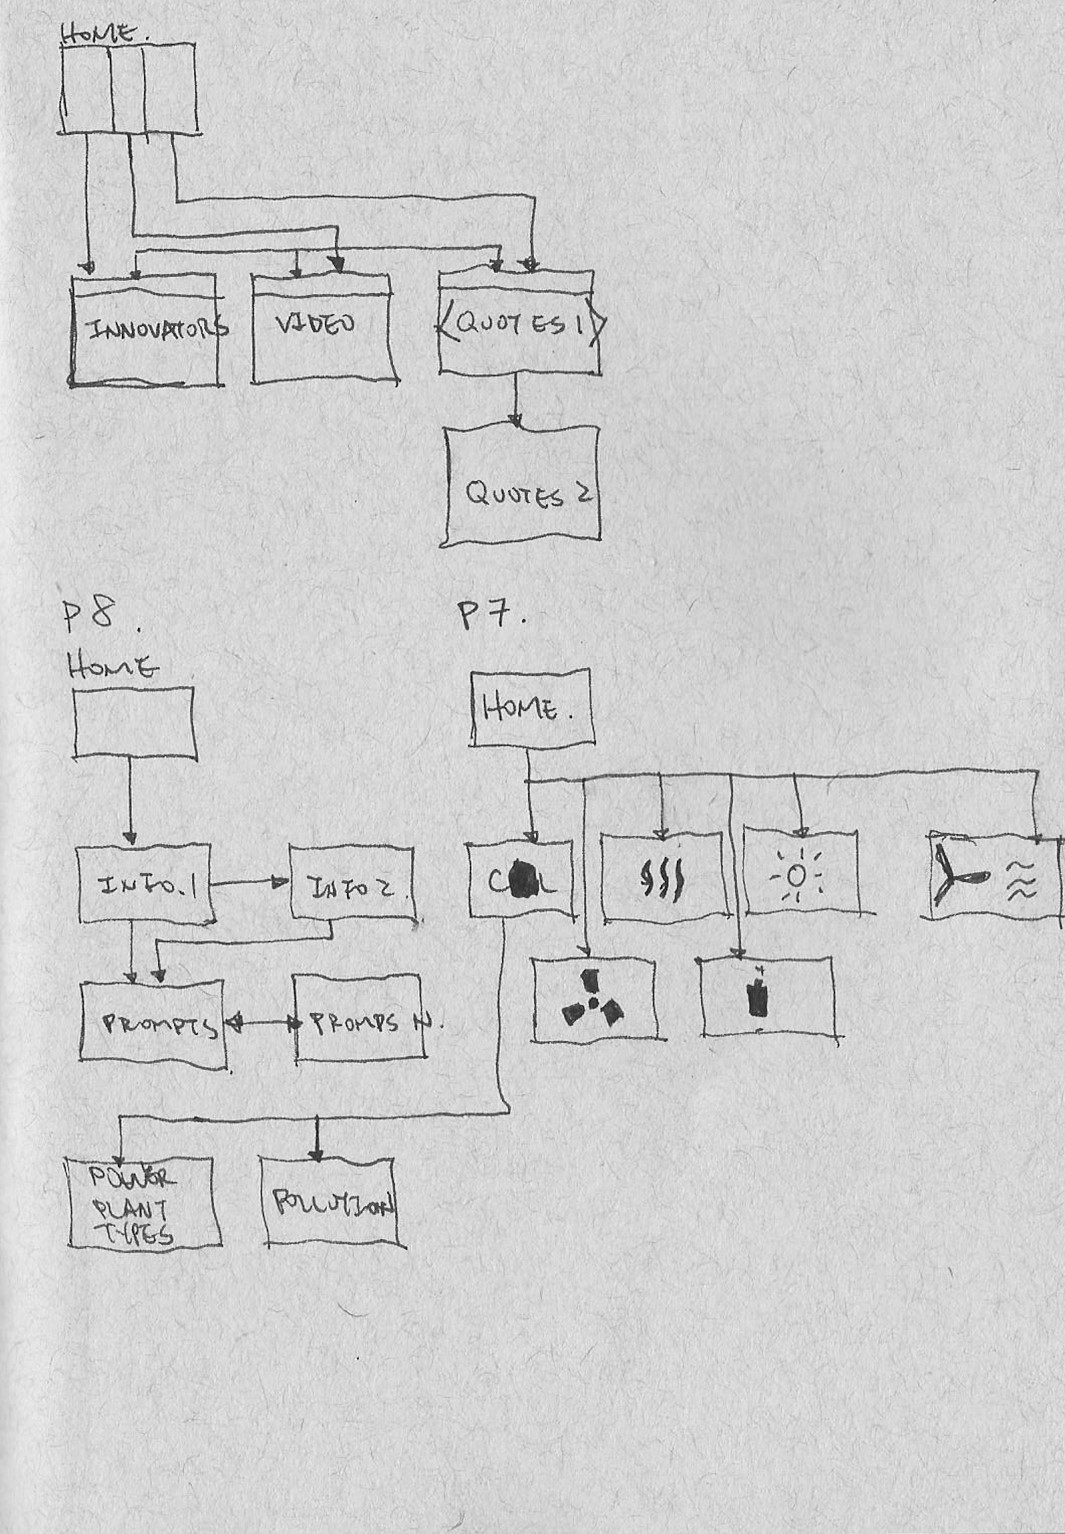 HOME.
INNOVATORS
VIDEO
<QUOTES 1>
QUOTES 2
P8.
HOME
INFO.1
INFO 2.
PROMPTS
PROMPS N.
P7.
HOME.
POWER
PLANT
TYPES
POLLUTION